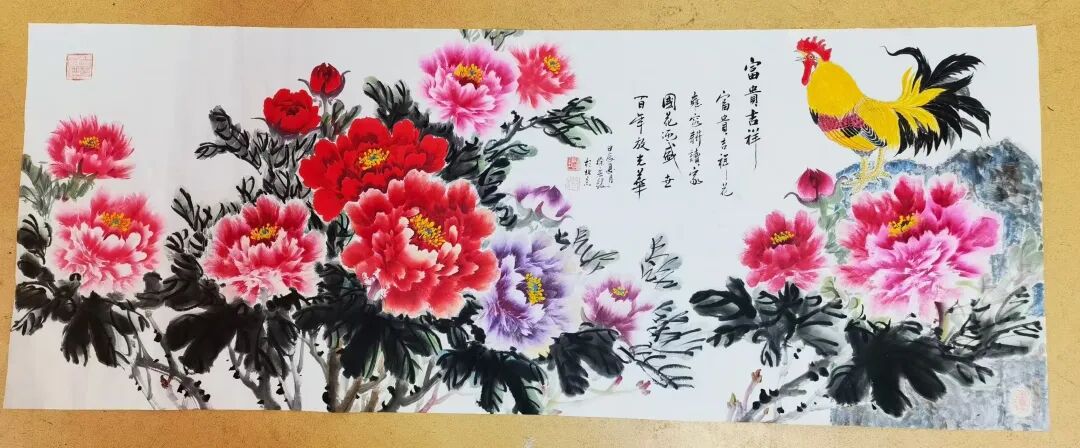 富貴吉祥
富貴吉祥花
雍容耕讀家
國花逢盛世
百年放光華
甲辰夏月
於北京